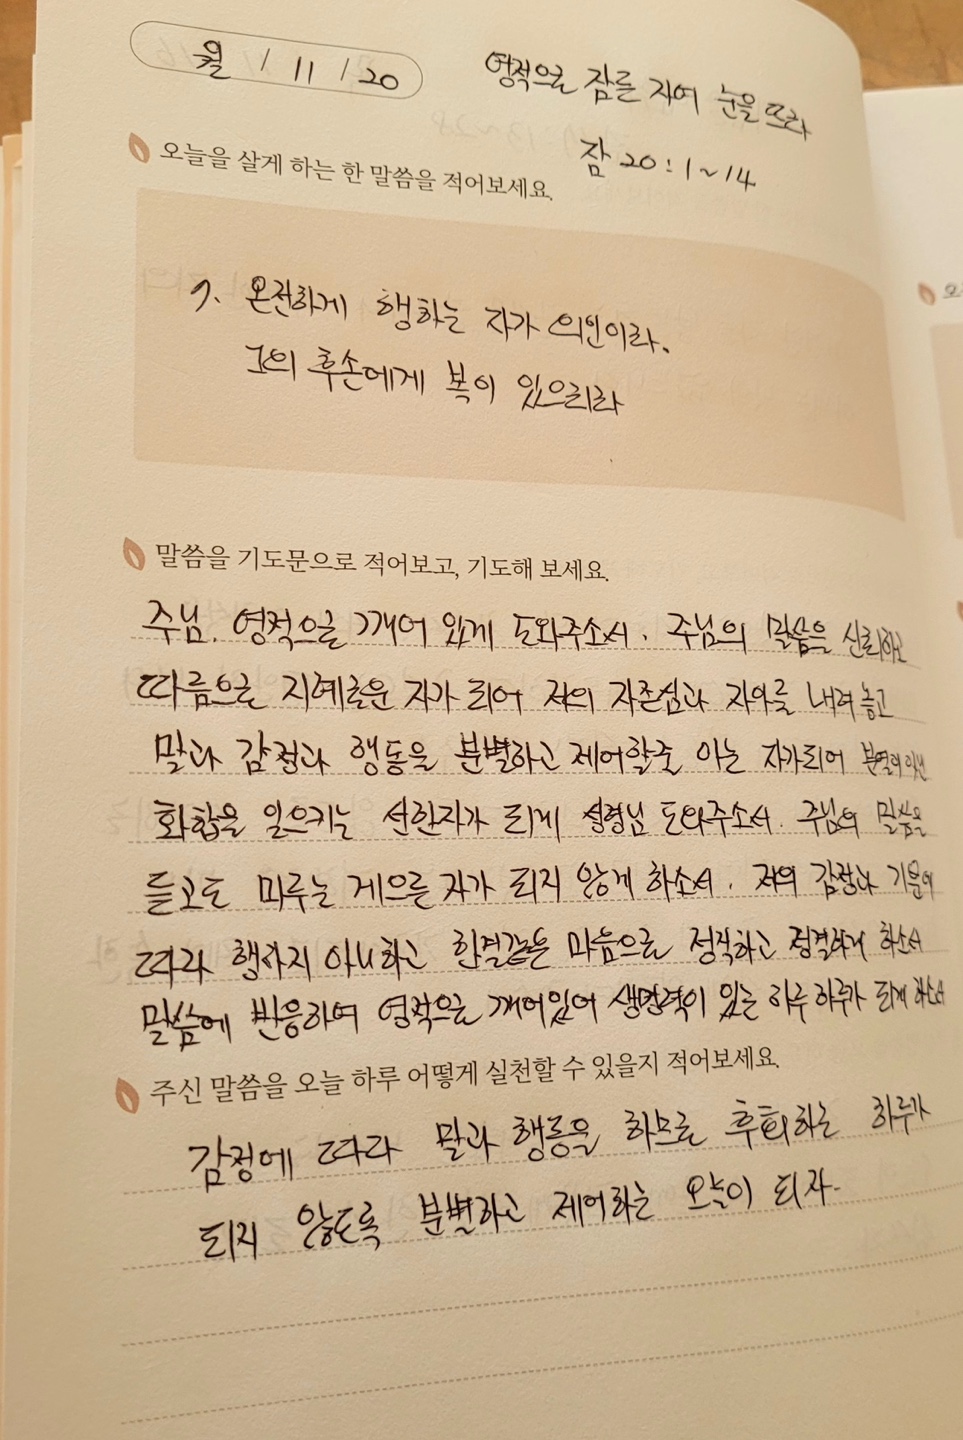 월 / 11 / 20
영적으로 잠을 자여 눈을 뜨라
잠 20:1~14
오늘을 살게 하는 한 말씀을 적어보세요.
7. 온전하게 행하는 자가 의인이라.
그의 후손에게 복이 있으리라
말씀을 기도문으로 적어보고, 기도해 보세요.
주님, 영적으로 깨어 있게 도와주소서. 주님의 말씀을 신뢰하고
따름으로 지혜로운 자가 되어 저의 자존심과 자아를 내려 놓고
말과 감정과 행동을 분별하고 제어할줄 아는 자가되어
화합을 일으키는 선한자가 되게 성령님 도와주소서. 주님의 말씀을
듣고도 미루는 게으른 자가 되지 않게 하소서. 저의 감정과 기분에
따라 행하지 아니하고 한결같은 마음으로 정직하고 정결하게 하소서
말씀에 반응하여 영적으로 깨어있어 생명력이 있는 하루 하루가 되게 하소서
주신 말씀을 오늘 하루 어떻게 실천할 수 있을지 적어보세요.
감정에 따라 말과 행동을 하므로 후회하는 하루가
되지 않도록 분별하고 제어하는 오늘이 되자.